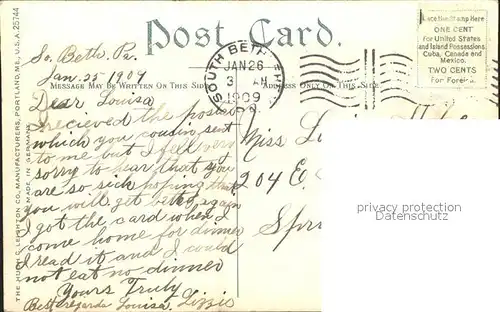 THE HUGH C. LEIGHTON CO., MANUFACTURERS, PORTLAND, ME., U.S.A. 25744
MADE IN GERMANY
Post Card.
MESSAGE MAY BE WRITTEN ON THIS SIDE
ADDRESS ONLY ON THIS SIDE
Place the Stamp Here
ONE CENT
for United States
and Island Possessions,
Cuba, Canada and
Mexico.
TWO CENTS
For Foreign.
SOUTH BETHLEHEM
JAN 26
3 AM
1909
So. Beth. Pa.
Jan. 25 1909
Dear Louisa
I recieved the postcard
which you cousin sent
to me but I fell very
sorry to hear that you
are so sick hoping that
you will get better again
I got the card when I
come home for dinner
I read it and I could
not eat no dinner
Yours Truly
Best regards Louisa, Lizzie
Miss
204 E.
privacy protection
Datenschutz